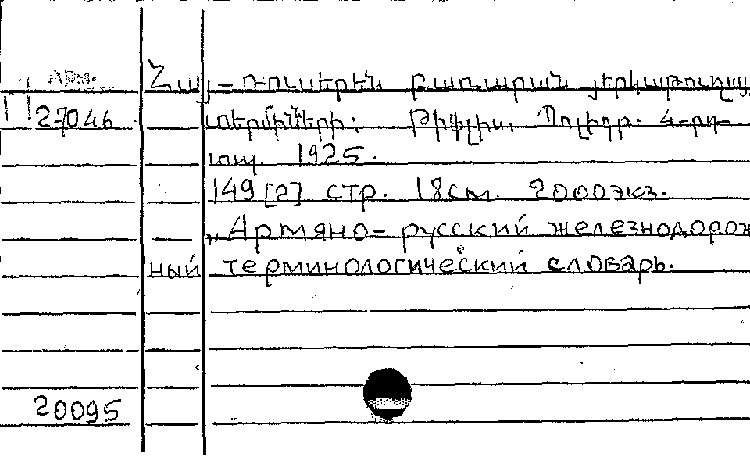 Арм.
Հայ-ռուսերէն բառարան երկաթուղայ
27046
տերմինների: Թիֆլիս, Պոլիգր. 4-րդ
տպ. 1925.
149 [2] стр. 18см. 2000экз.
„Армяно-русский железнодорож
ный терминологический словарь.
20095